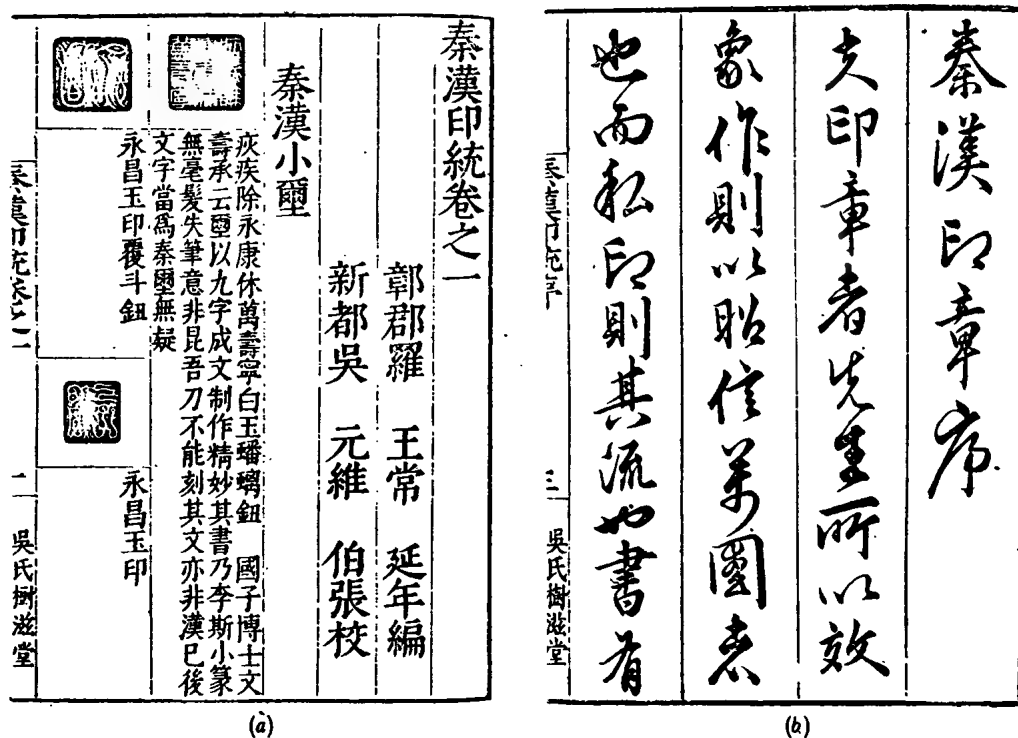 秦漢印統卷之一
鄣郡羅 王常 延年編
新都吳 元維 伯張校
秦漢小壐
疢疾除永康休萬壽寧白玉蟠螭鈕 國子博士文
壽承云壐以九字成文制作精妙其書乃李斯小篆
無毫髮失筆意非昆吾刀不能刻其文亦非漢已後
文字當爲秦壐無疑
永昌玉印覆斗鈕
永昌玉印
秦漢印統卷之一 二 吳氏樹滋堂
(a)
秦漢印章序
夫印章者先所以效
象作則以昭信萬國者
也而私印則其流也書有
秦漢印統序 三 吳氏樹滋堂
(b)